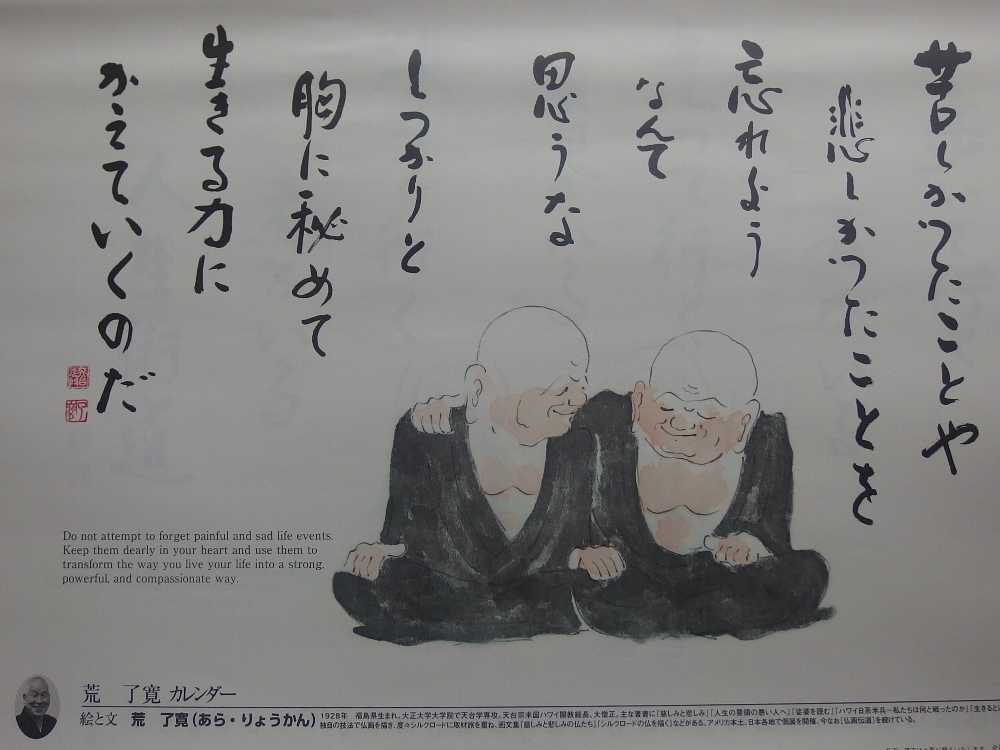 苦しかったことや
悲しかったことを
忘れよう
なんて
思うな
しっかりと
胸に秘めて
生きる力に
かえていくのだ
Do not attempt to forget painful and sad life events.
Keep them dearly in your heart and use them to
transform the way you live your life into a strong,
powerful, and compassionate way.
荒 了寛 カレンダー
絵と文 荒 了寛(あら・りょうかん)
1928年 福島県生まれ。大正大学大学院で天台学専攻。天台宗米国ハワイ開教総長、大僧正。主な著書に「慈しみと悲しみ」「人生の要領の悪い人へ」「娑婆を読む」「ハワイ日系米兵―私たちは何と戦ったのか」「生きるとは
独自の技法で仏画を描き、度々シルクロードに取材旅を重ね、画文集「慈しみと悲しみの仏たち」「シルクロードの仏を描く」などがある。アメリカ本土、日本各地で個展を開催、今なお「仏画伝道」を続けている。